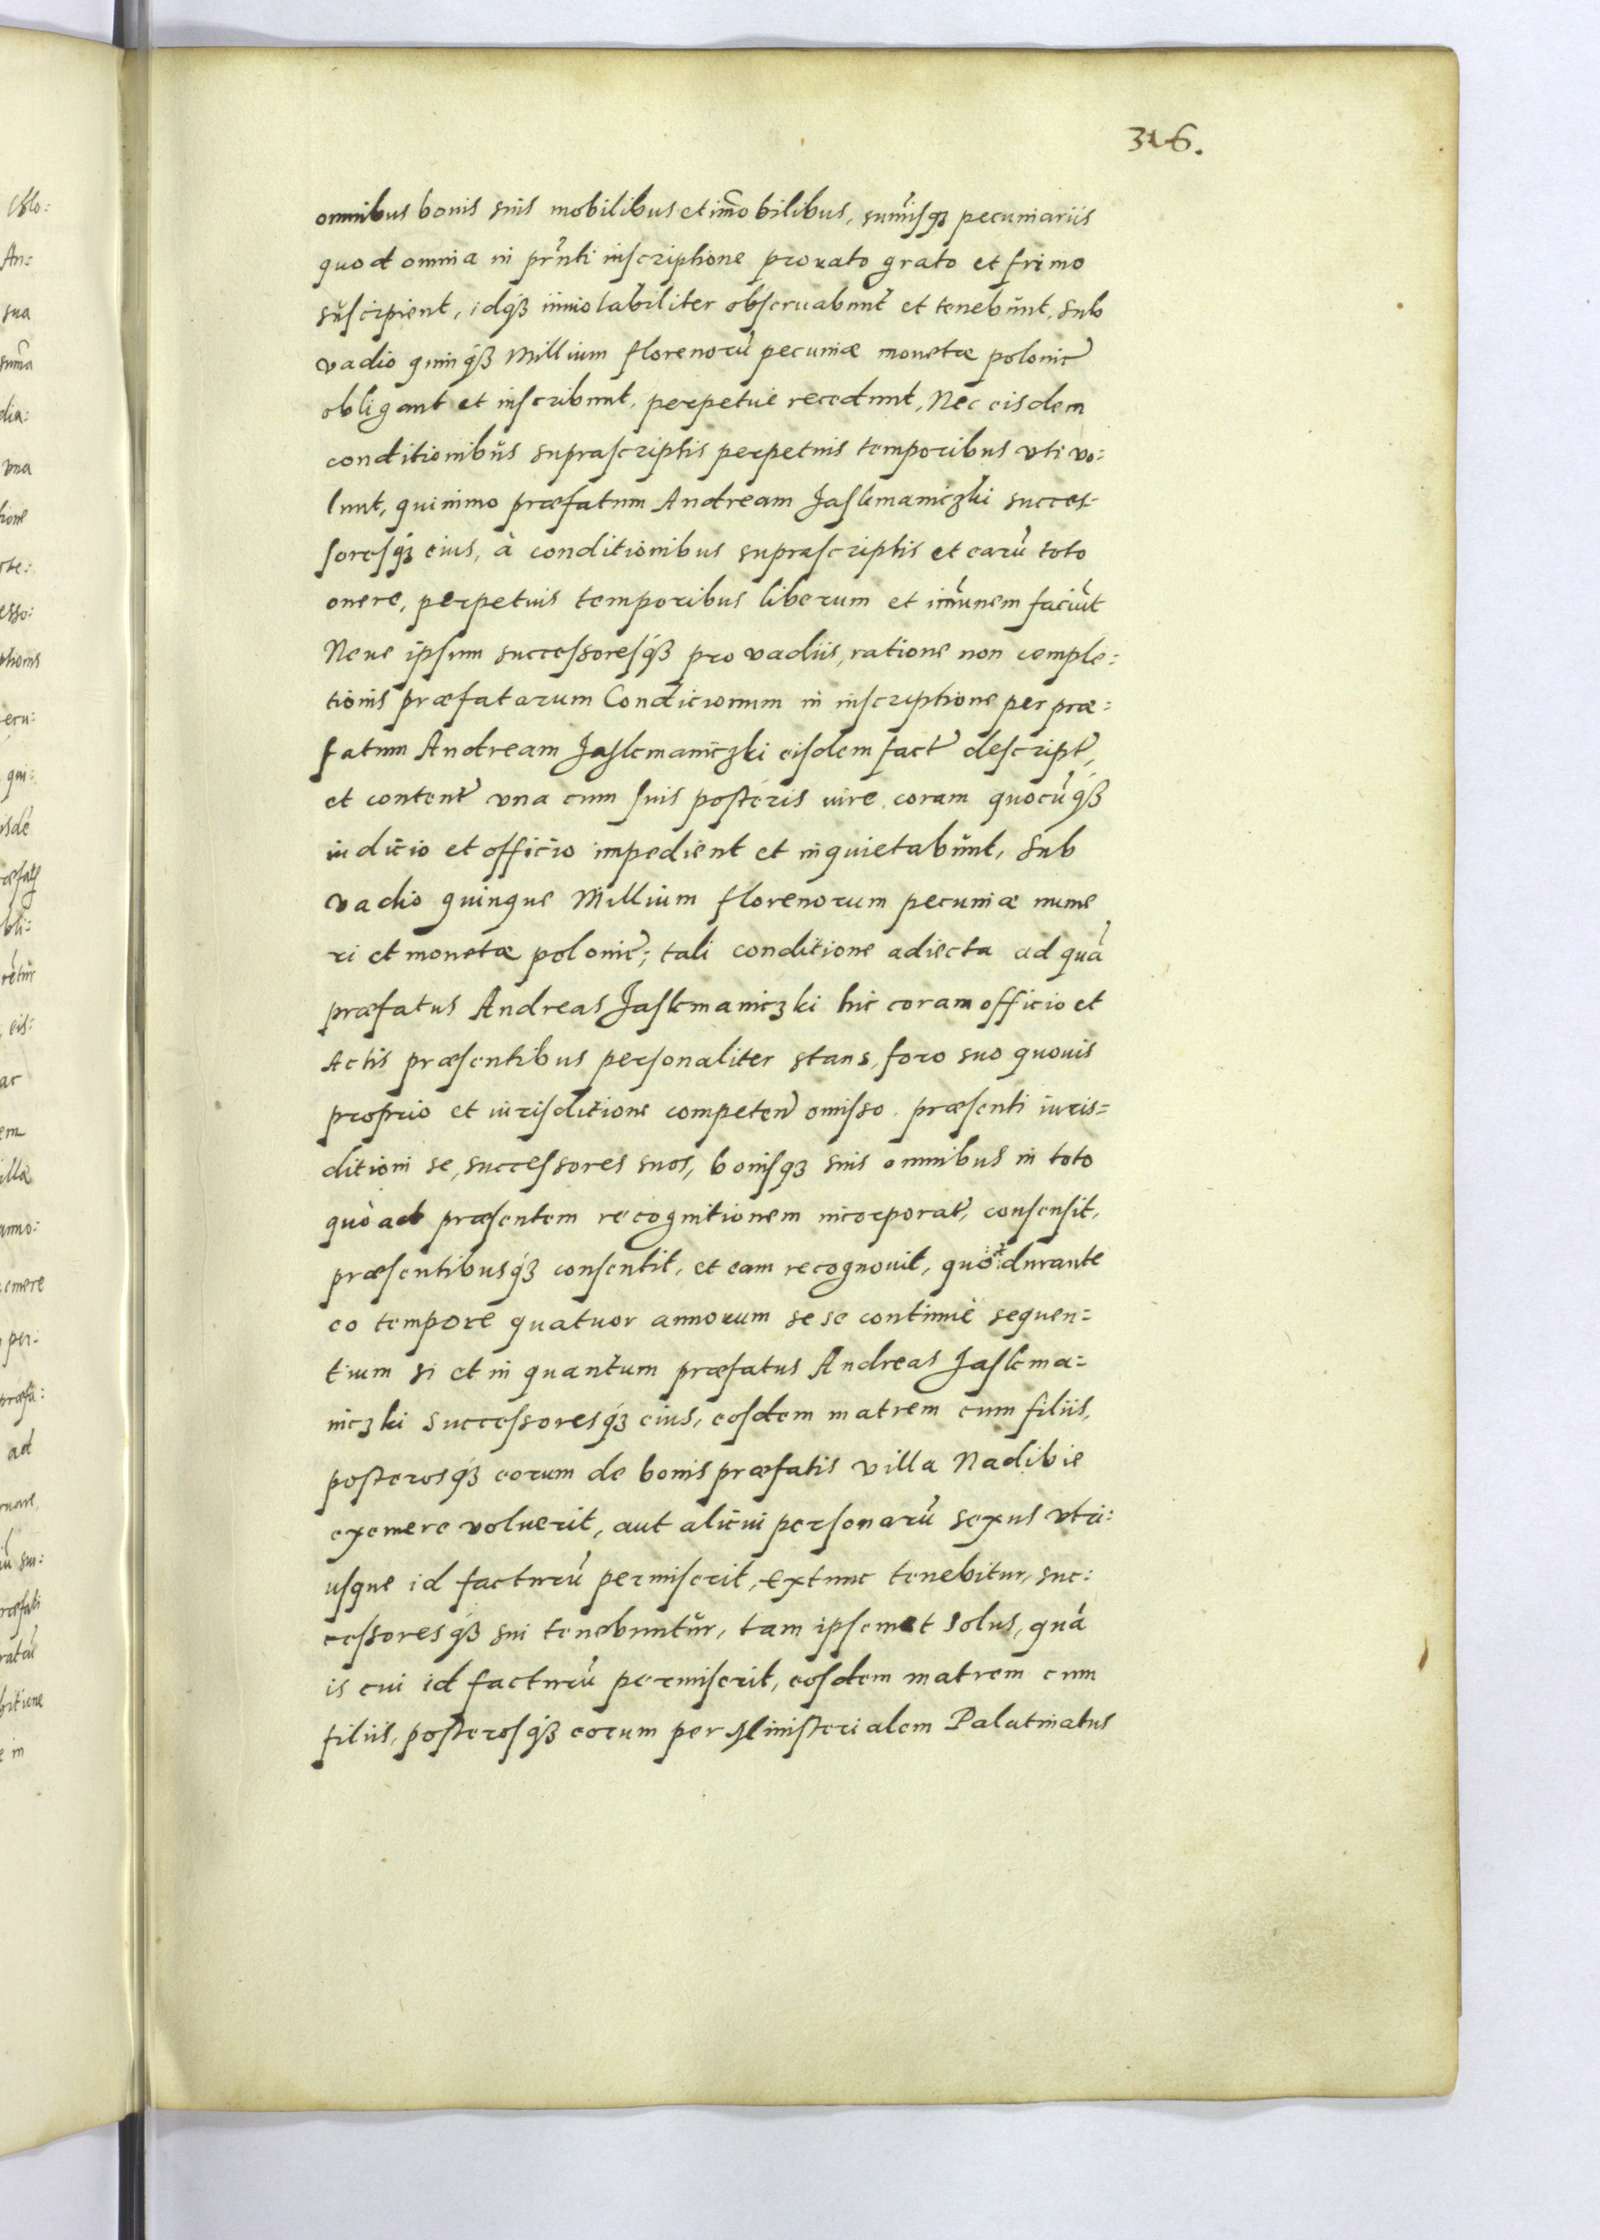 316.
omnibus bonis suis mobilibus et im̃obilibus, sum̃isq₃ pecuniariis
quod omnia in pr̃nti inscriptione pro rato grato et frimo
suscipient, idq₃ inuiolabiliter obseruabunt et tenebunt, sub
vadio quinq₃ Millium florenorũ pecuniæ monetæ polonic̃
obligant et inscribunt, perpetue recedunt, Nec eisdem
conditionibus suprascriptis perpetuis temporibus vti vo:
lunt, quinimo præfatum Andream Jaskmaniczki succes-
soresq₃ eius, à conditionibus suprascriptis et earũ toto
onere, perpetuis temporibus liberum et im̃unem faciũt
Neue ipsum successoresq₃ pro vadiis, ratione non comple:
tionis præfatarum Condicionum in inscriptione per præ:
fatum Andream Jaskmaniczki eisdem fact̃ descript̃,
et content̃ vna cum suis posteris iure coram quocũq₃
iudicio et officio impedient et inquietabunt, sub
vadio quinque Millium florenorum pecuniæ nume
ri et monetæ polonic̃; tali conditione adiecta ad quã
præfatus Andreas Jaskmaniczki hic coram officio et
Actis præsentibus personaliter stans, foro suo quouis
proprio et iurisditione competen̄ omisso præsenti iuris=
ditioni se, successores suos, bonisq₃ suis omnibus in toto
quò ad præsentem recognitionem incorporat̃, consensit,
præsentibusq₃ consentit, et eam recognouit, quod durante
eo tempore quatuor annorum se se continuè sequen=
tium si et in quantum præfatus Andreas Jaskma=
niczki successoresq₃ eius, eosdem matrem cum filiis,
posterosq₃ eorum de bonis præfatis villa Nadibie
exemere voluerit, aut alicui personarũ sexus vtri:
usque id facturũ permiserit, extunc tenebitur, suc:
cessoresq₃ sui tenebuntur, tam ipsemet solus, quã
is cui id facturũ permiserit, eosdem matrem cum
filiis, posterosq₃ eorum per Ministerialem Palatinatus